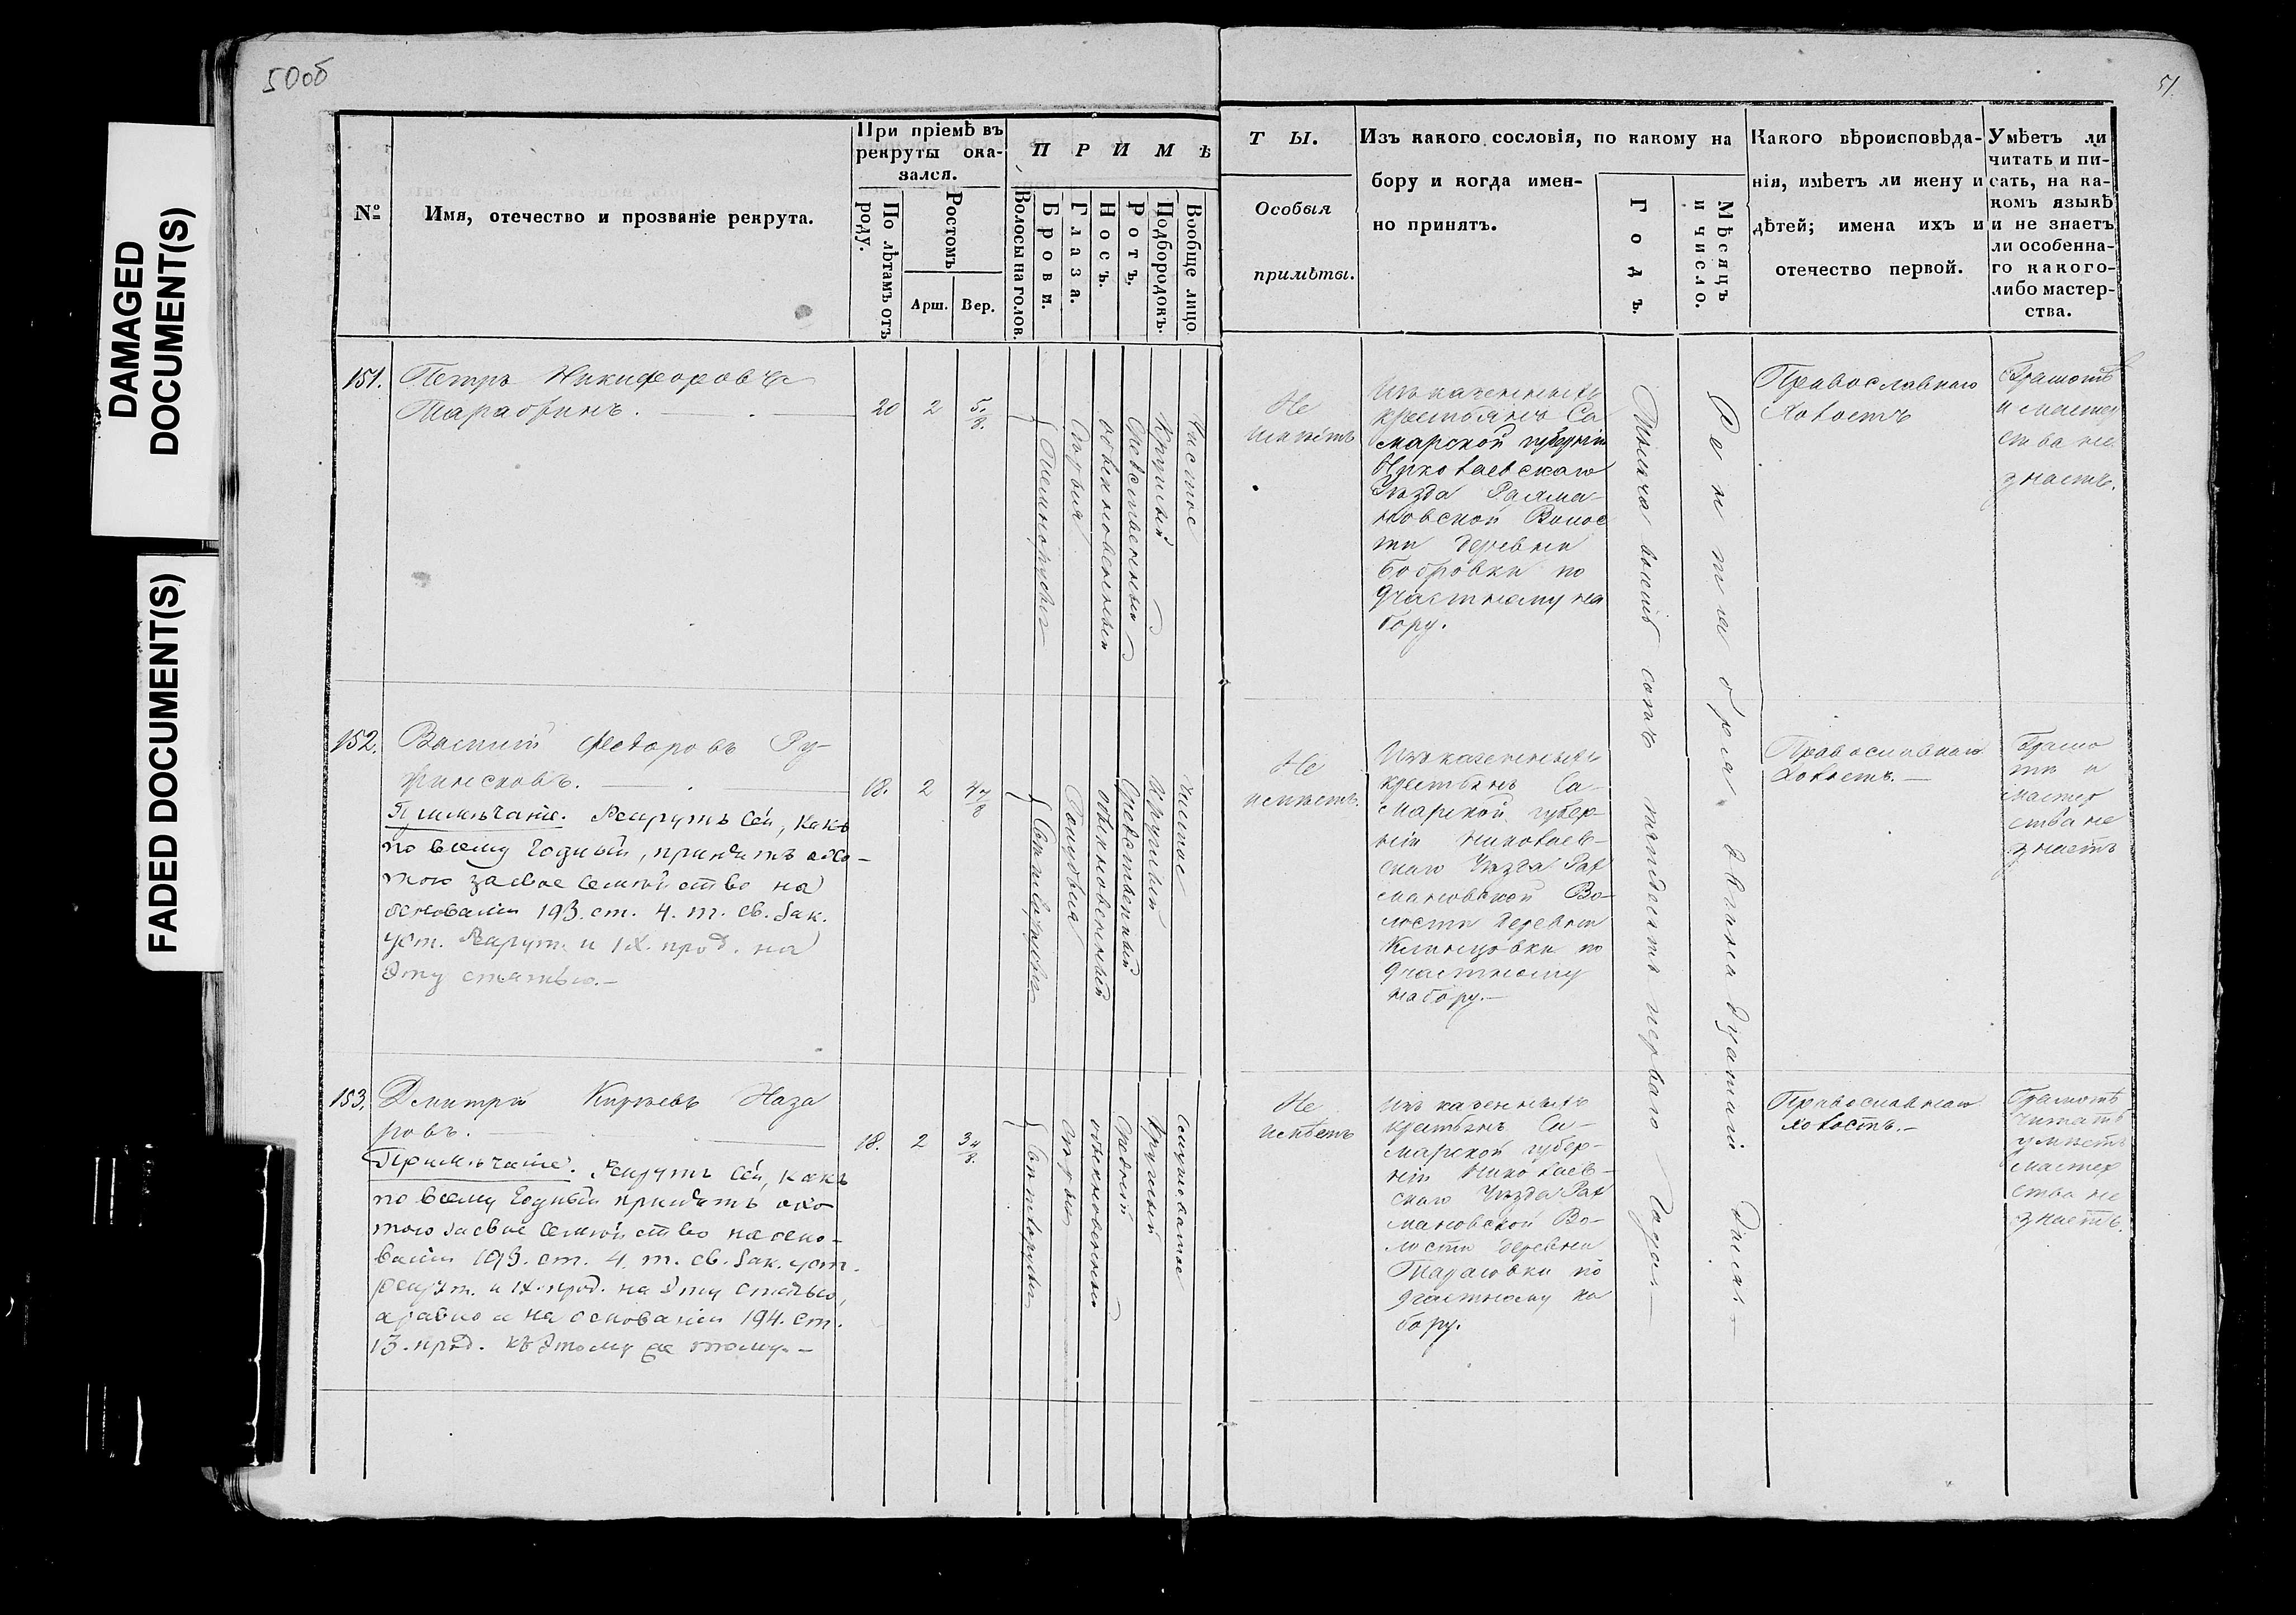 50об
51
DAMAGED
DOCUMENT(S)
FADED DOCUMENT(S)
№
Имя, отечество и прозваніе рекрута.
При пріемѣ въ
рекруты ока-
зался.
По лѣтамъ отъ
роду.
Ростомъ
Арш.
Вер.
ПРИМѢ
Волосы на голов.
Брови.
Глаза.
Носъ.
Ротъ.
Подбородокъ.
Вообще лицо.
ТЫ.
Особыя
примѣты.
Изъ какого сословія, по какому на
бору и когда имен-
но принятъ.
Годъ.
Мѣсяцъ
и число.
Какого вѣроисповѣда-
нія, имѣетъ ли жену и
дѣтей; имена ихъ и
отечество первой.
Умѣетъ ли
читать и пи-
сать, на ка-
комъ языкѣ
и не знаетъ
ли особенна-
го какого-
либо мастер-
ства.
151.
Петръ Никифоровъ
20
2
5/8.
Темнорусые
обыкновенный
Средственный
Круглый
Чистое
Не
имѣетъ
Изъ казенныхъ
крестьянъ Са
марской губерніи
Николаевскаго
Уѣзда
Волос
ти деревни
Бобровки по
Участному на
бору.
Православнаго
Холостъ
Грамотѣ
и мастер
ства не
знаетъ.
152.
Василій Федоровъ
18.
2
4 4/8
Примѣчаніе. Рекрутъ сей, какъ
по всему годный, принятъ охо-
тою за свое семейство на
основаніи 193. ст. 4. т. Св. Зак.
Уст. Рекрут. и IX. прод. на
эту статью.-
Светлорусые
Голубыя
обыкновенный
Средственный
Круглый
Чистое
Не
имѣетъ.
Изъ казенныхъ
крестьянъ Са-
марской губер-
ніи Николаев-
скаго Уѣзда Рах
мановской Во-
лости деревни
Клинцовки по
Участному
набору.-
Православнаго
Холостъ.-
Грамо
ты и
мастер
ства не
знаетъ
153.
Дмитрій Кирѣевъ Наза
ровъ.
18.
2
3 4/8.
Примѣчаніе. Рекрутъ сей, какъ
по всему годный принятъ охо
тою за свое семейство на осно-
ваніи 193. ст. 4. т. Св. Зак. уст.
рекрут. и IX. прод. на эту статью,
а равно и на основаніи 194. ст.
13. прод. къ этому же тому.-
Светлорусые
Сѣрыя
обыкновенный
Средній
Круглый
Не
имѣетъ
Изъ казенныхъ
крестьянъ Са-
марской губер-
ніи Николаев-
скаго Уѣзда Рах
мановской Во-
лости деревни
по
Участному на
бору.
Тысяча восемь сотъ пятьдесятъ перваго года
Сентября двадцатый день
Православнаго
холостъ.-
Грамотѣ
читать
умѣетъ
мастер
ства не
знаетъ.